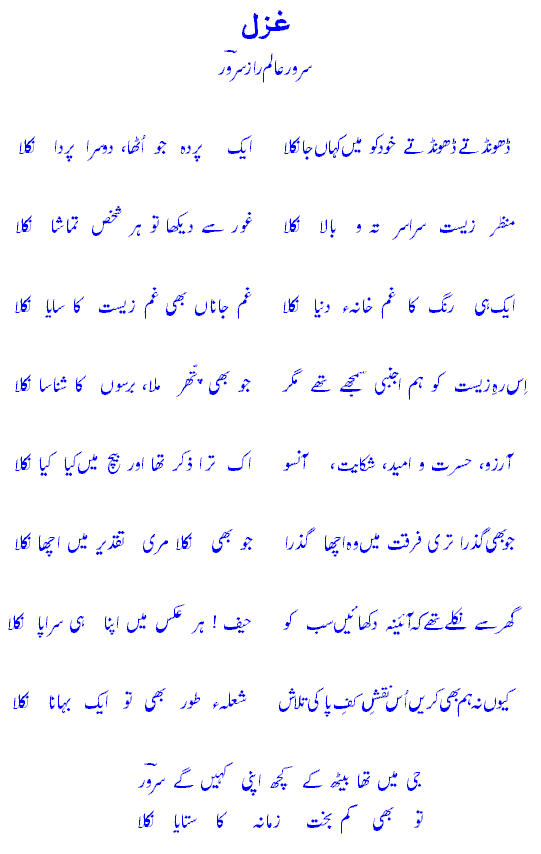 غزل
سرور عالم راز سرورؔ
ڈھونڈتے ڈھونڈتے خود کو میں کہاں جا نکلا ایک پردہ جو اُٹھا، دوسرا پردا نکلا
منظر زیست سراسر تہ و بالا نکلا غور سے دیکھا تو ہر شخص تماشا نکلا
ایک ہی رنگ کا غم خانہء دنیا نکلا غم جاناں بھی غم زیست کا سایا نکلا
اِس رہِ زیست کو ہم اجنبی سمجھے تھے مگر جو بھی پتّھر ملا، برسوں کا شناسا نکلا
آرزو، حسرت و امید، شکایت، آنسو اک ترا ذکر تھا اور بیچ میں کیا کیا نکلا
جو بھی گذرا تری فرقت میں وہ اچھا گذرا جو بھی نکلا مری تقدیر میں اچھا نکلا
گھر سے نکلے تھے کہ آئینہ دکھائیں سب کو حیف ! ہر عکس میں اپنا ہی سراپا نکلا
کیوں نہ ہم بھی کریں اُس نقشِ کفِ پا کی تلاش شعلہء طور بھی تو ایک بہانا نکلا
جی میں تھا بیٹھ کے کچھ اپنی کہیں گے سرورؔ
تو بھی کم بخت زمانہ کا ستایا نکلا